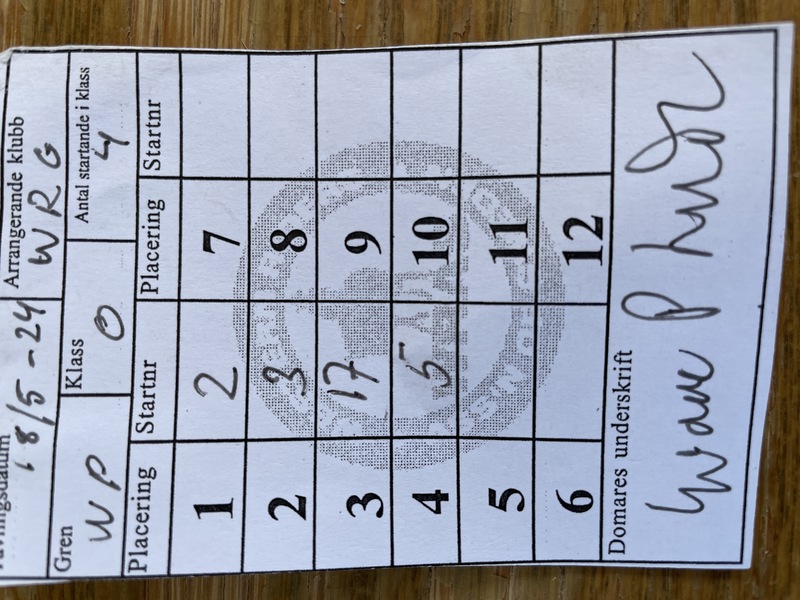 Tävlingsdatum Arrangerande klubb
18/5-24 WRG
Gren Klass Antal startande i klass
WP O 4
Placering Startnr Placering Startnr
1 2 7
2 3 8
3 17 9
4 5 10
5 11
6 12
Domares underskrift